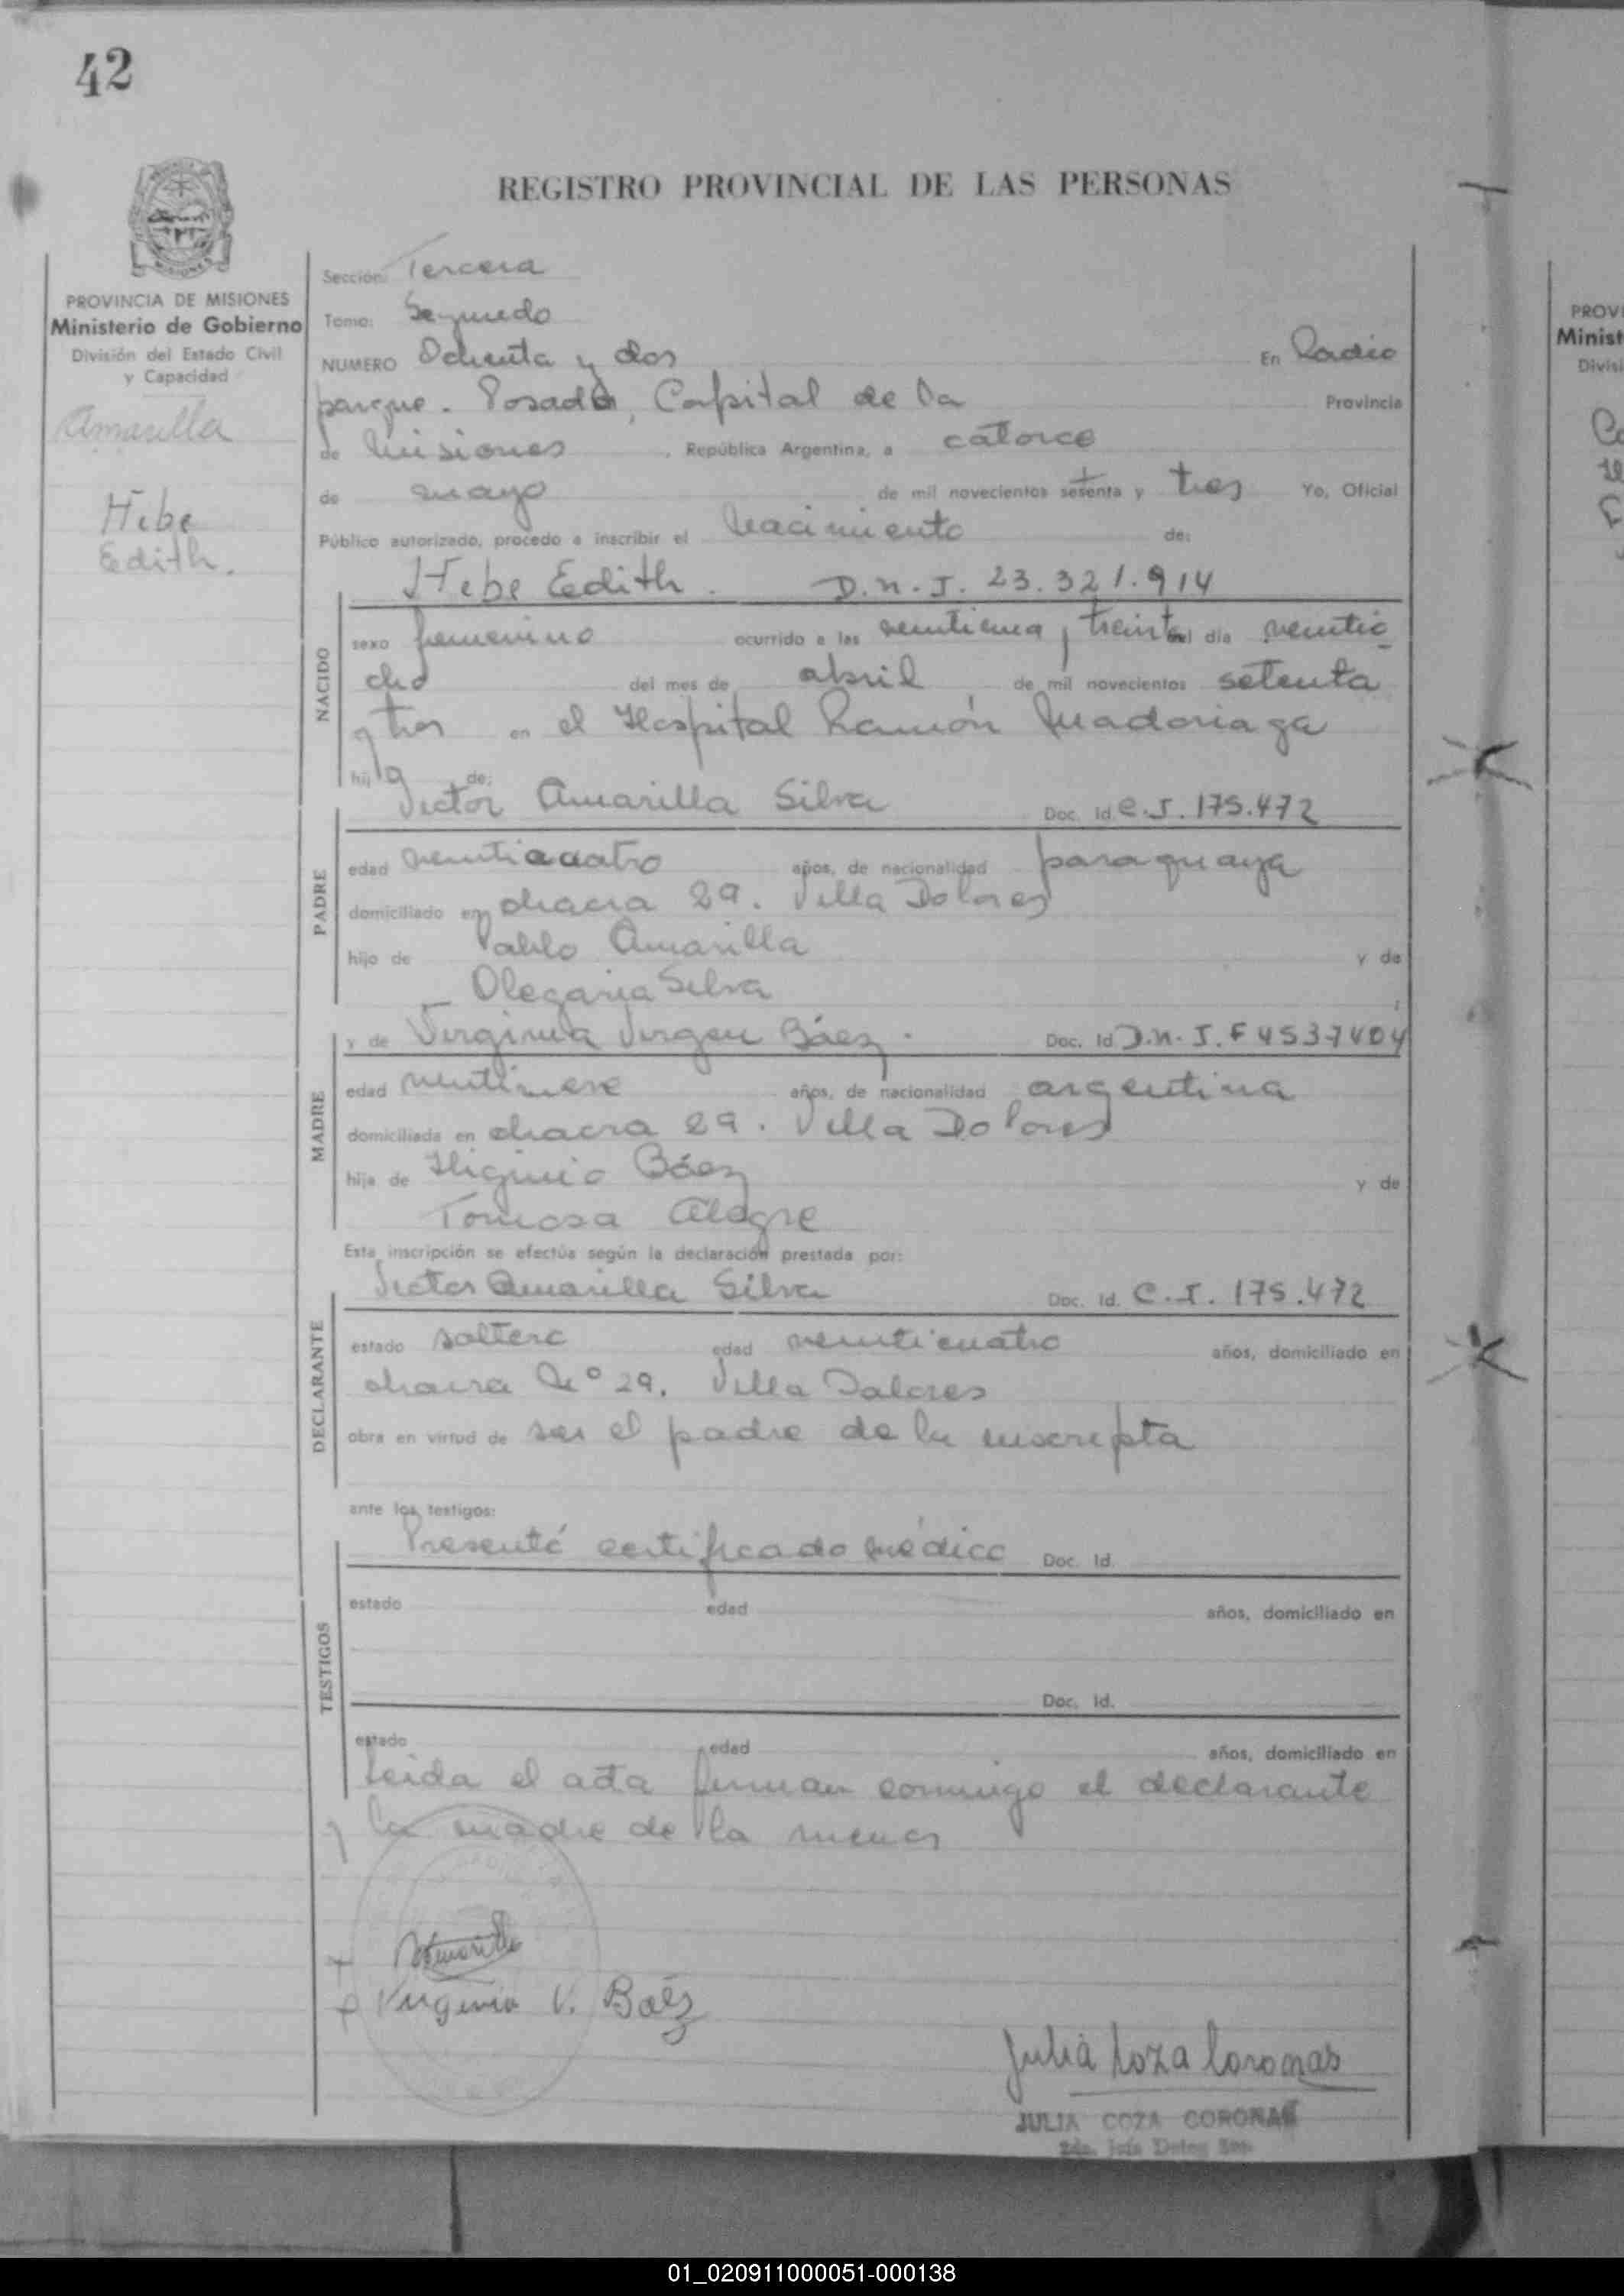 42
REGISTRO PROVINCIAL DE LAS PERSONAS
PROVINCIA DE MISIONES
Ministerio de Gobierno
División del Estado Civil
y Capacidad
Amarilla
Hebe
Edith.
Sección: Tercera
Tomo: Segundo
NUMERO Ochenta y dos En Radio
parque. Posadas, Capital de la Provincia
de Misiones, República Argentina, a catorce
de mayo de mil novecientos setenta y tres Yo, Oficial
Público autorizado, procedo a inscribir el Nacimiento de:
Hebe Edith. D.N.I. 23.321.914
NACIDO
sexo femenino ocurrido a las veintiuna y treinta del día veintio
cho del mes de abril de mil novecientos setenta
y tres en el Hospital Ramón Madariaga
hija de:
Victor Amarilla Silva Doc. Id. C.I. 175.472
PADRE
edad venticuatro años, de nacionalidad paraguaya
domiciliado en chacra 29. Villa Dolores
hijo de Pablo Amarilla y de
Olegaria Silva
y de Virginia Virgen Báez. Doc. Id D.N.I. F 4537404
MADRE
edad años, de nacionalidad argentina
domiciliada en chacra 29. Villa Dolores
hija de Higinio Báez y de
Tomasa Alegre
Esta inscripción se efectúa según la declaración prestada por:
Victor Amarilla Silva Doc. Id. C.I. 175.472
DECLARANTE
estado soltero edad veinticuatro años, domiciliado en
chacra Nº 29. Villa Dolores
obra en virtud de ser el padre de la inscripta
ante los testigos:
Presentó certificado médico Doc. Id.
TESTIGOS
estado edad años, domiciliado en
Doc. Id.
estado edad años, domiciliado en
Leida el acta firman conmigo el declarante
y la madre de la menor
Amarilla
Virginia V. Baéz
Julia Coza Coronas
JULIA COZA CORONAS
PROVI
Minist
Divisi
01_020911000051-000138